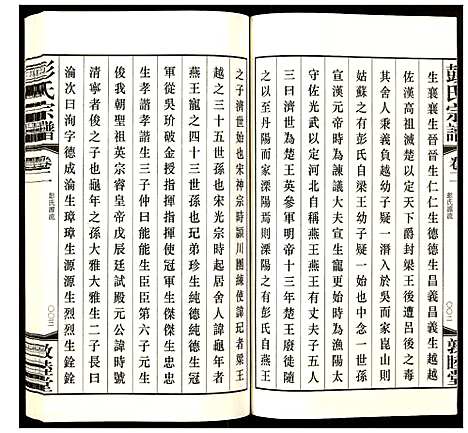 彭氏宗譜
卷一
彭氏源流
〇〇二
敦睦堂
生襄襄生晉晉生仁仁生德德生昌義昌義生越越
從漢高祖滅楚以定天下爵封梁王後遭呂后之毒
其舍人秉義負越幼子疑一潛入於吳而家崑山則
姑蘇之有彭氏自梁王幼子疑一始也疑一生宣
宣漢元帝時為諫議大夫生寵更始時為漁陽太
守佐光武以定河北自稱燕王燕王有子五人
三曰濟世為楚王英參軍明帝十三年楚王英廢徙
丹陽而家溧陽焉則溧陽之有彭氏自燕王
之子濟世始也宋神宗時潁川團練使諱玘者梁王
越之三十七世孫也宋光宗時起居舍人諱龜年者
燕王寵之四十三世孫也兄弟珍生純德純德生冠
軍從吳玠破金授指揮指揮使冠軍生傑傑生忠忠
生孝諧孝諧生三子仲曰能能生臣臣第六子元生
俊我朝聖祖英宗睿皇帝戊辰廷試殿元公諱時號
清寧者俊之子也龜年之孫大雅大雅生二子長次
淪次曰洵字德成淪生璋璋生源源生烈烈生銓銓
彭氏宗譜
卷一
彭氏源流
〇〇三
敦睦堂